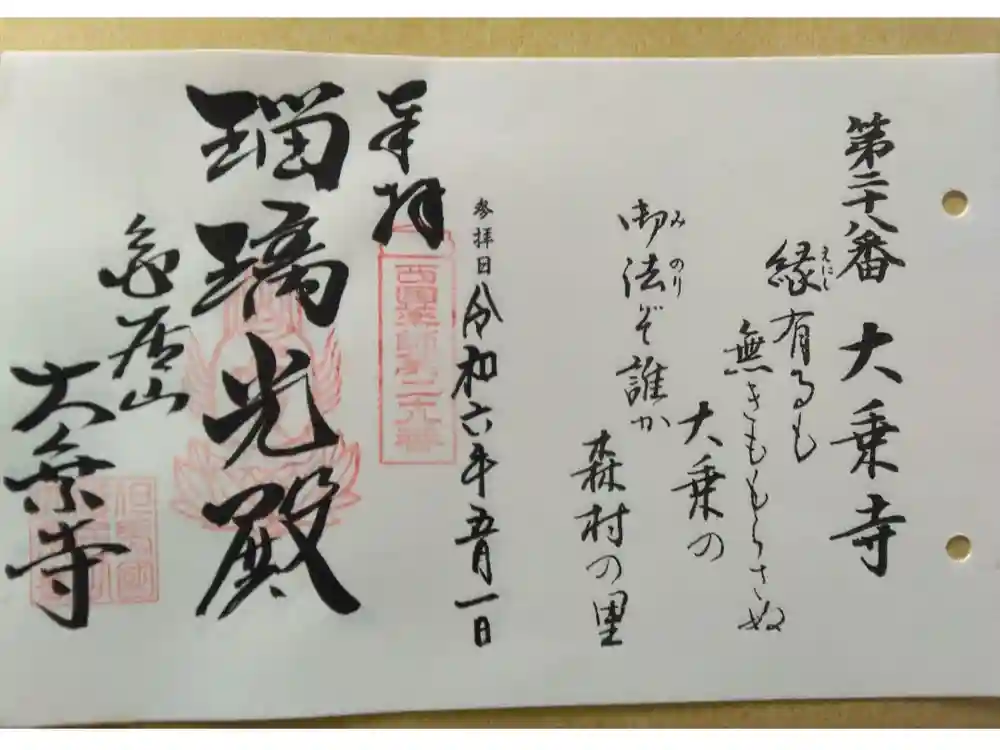 第二十八番 大乗寺
縁有るも
えにし
無きももらさぬ
大乗の
御法ぞ誰か
みのり
森村の里
参拝日 令和六年五月一日
奉拝
西国薬師第二十八番
瑠璃光殿
亀居山
大乗寺